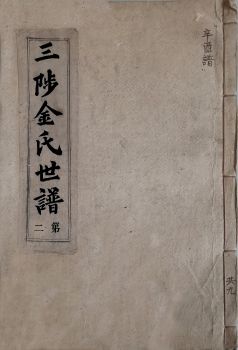 辛酉譜
三陟金氏世譜
第二
共九